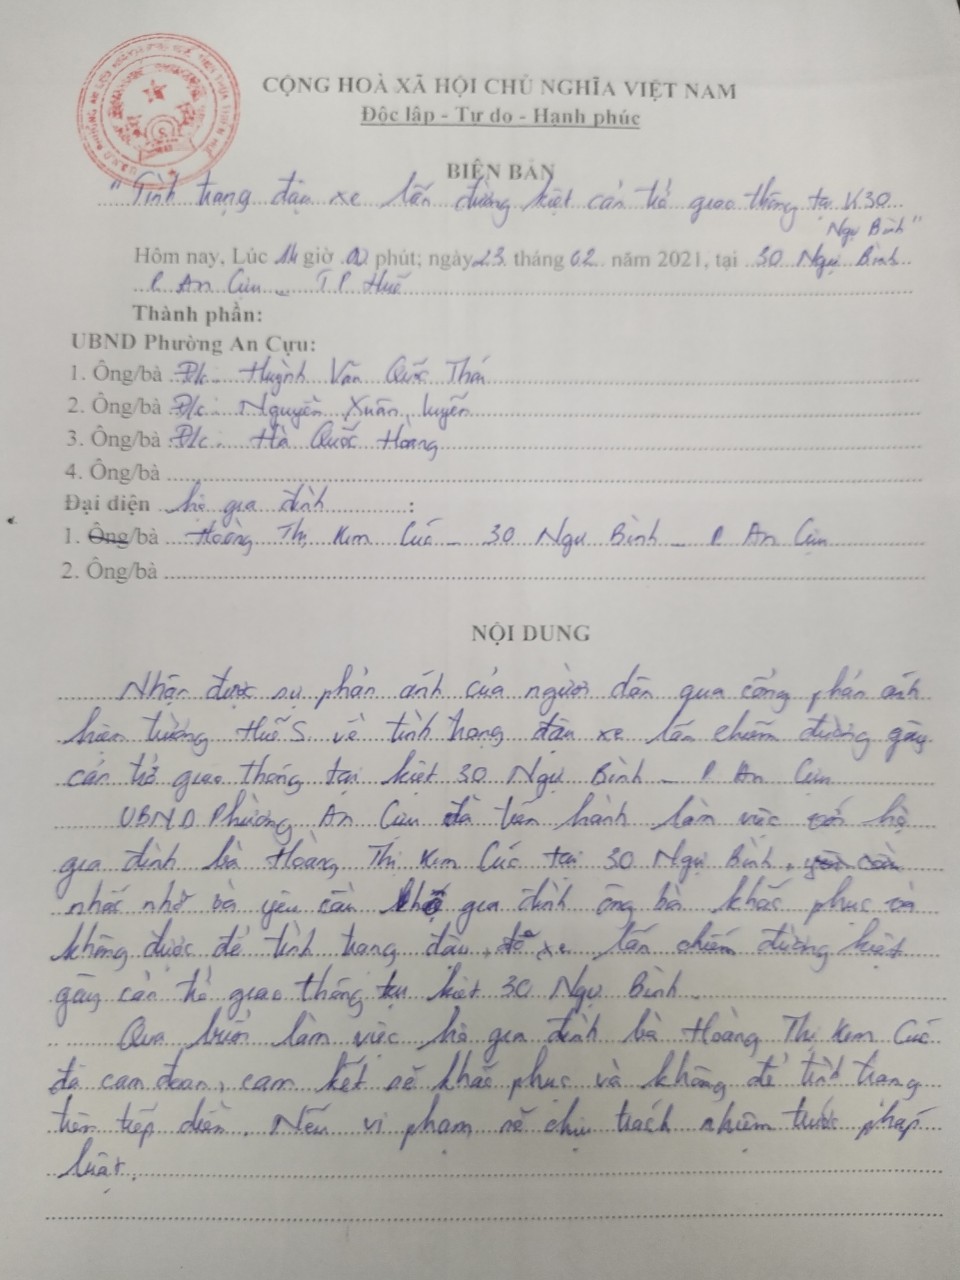 CỘNG HOÀ XÃ HỘI CHỦ NGHĨA VIỆT NAM
Độc lập - Tự do - Hạnh phúc
BIÊN BẢN
"Tình trạng đậu xe lấn đường kiệt cản trở giao thông tại K30
Ngự Bình"
Hôm nay, Lúc 14 giờ 00 phút; ngày 23 tháng 02 năm 2021, tại 30 Ngự Bình
P. An Cựu _ TP Huế
Thành phần:
UBND Phường An Cựu:
1. Ông/bà Đ/c: Huỳnh Văn Quốc Thái
2. Ông/bà Đ/c: Nguyễn Xuân Luyến
3. Ông/bà Đ/c: Hà Quốc Hoàng
4. Ông/bà
Đại diện hộ gia đình :
1. Ông/bà Hoàng Thị Kim Cúc _ 30 Ngự Bình _ P An Cựu
2. Ông/bà
NỘI DUNG
Nhận được sự phản ánh của người dân qua cổng phản ánh
hiện trường Huế S. về tình trạng đậu xe lấn chiếm đường gây
cản trở giao thông tại kiệt 30 Ngự Bình _ P An Cựu
UBND Phường An Cựu đã tiến hành làm việc với hộ
gia đình bà Hoàng Thị Kim Cúc tại 30 Ngự Bình,
nhắc nhở và yêu cầu gia đình ông bà khắc phục và
không được để tình trạng đậu, đỗ xe lấn chiếm đường kiệt
gây cản trở giao thông tại kiệt 30 Ngự Bình.
Qua buổi làm việc hộ gia đình bà Hoàng Thị Kim Cúc
đã cam đoan, cam kết sẽ khắc phục và không để tình trạng
trên tiếp diễn. Nếu vi phạm sẽ chịu trách nhiệm trước pháp
luật.